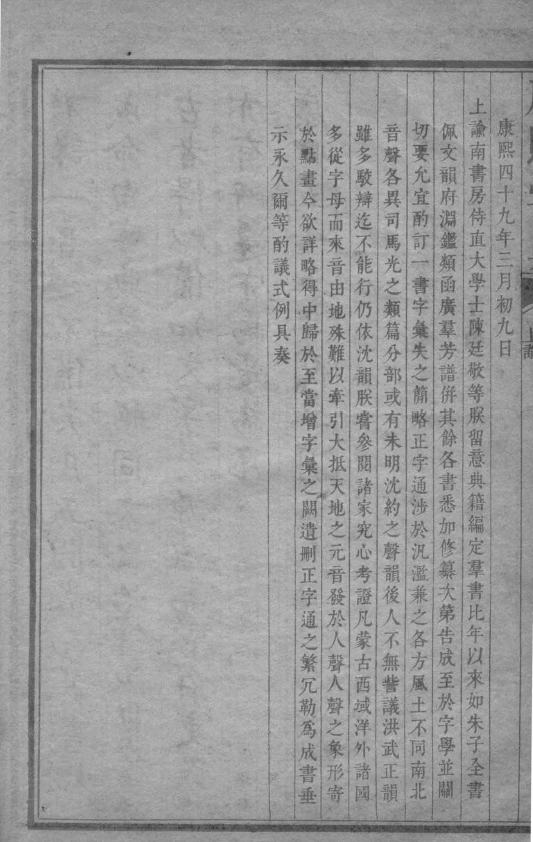 康熙四十九年三月初九日
上諭南書房侍直大學士陳廷敬等朕留意典籍編定羣書比年以來如朱子全書
佩文韻府淵鑑類函廣羣芳譜併其餘各書悉加修纂次第告成至於字學並關
切要允宜酌訂一書字彙失之簡略正字通涉於汎濫兼之各方風土不同南北
音聲各異司馬光之類篇分部或有未明沈約之聲韻後人不無訾議洪武正韻
雖多駁辯迄不能行仍依沈韻朕嘗參閱諸家究心考證凡蒙古西域洋外諸國
多從字母而來音由地殊難以牽引大抵天地之元音發於人聲人聲之象形寄
於點畫今欲詳略得中歸於至當增字彙之闕遺刪正字通之繁冗勒爲成書垂
示永久爾等酌議式例具奏